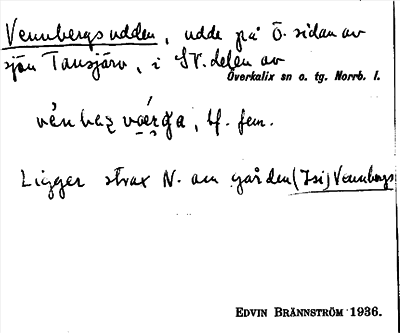 Vennbergsudden, udde på Ö. sidan av
sjön Tansjärv, i SV. delen av
Överkalix sn o. tg. Norrb. l.
bf. fem.
Ligger strax N. om gården (Isi) Vennbergs
EDVIN BRÄNNSTRÖM 1936.